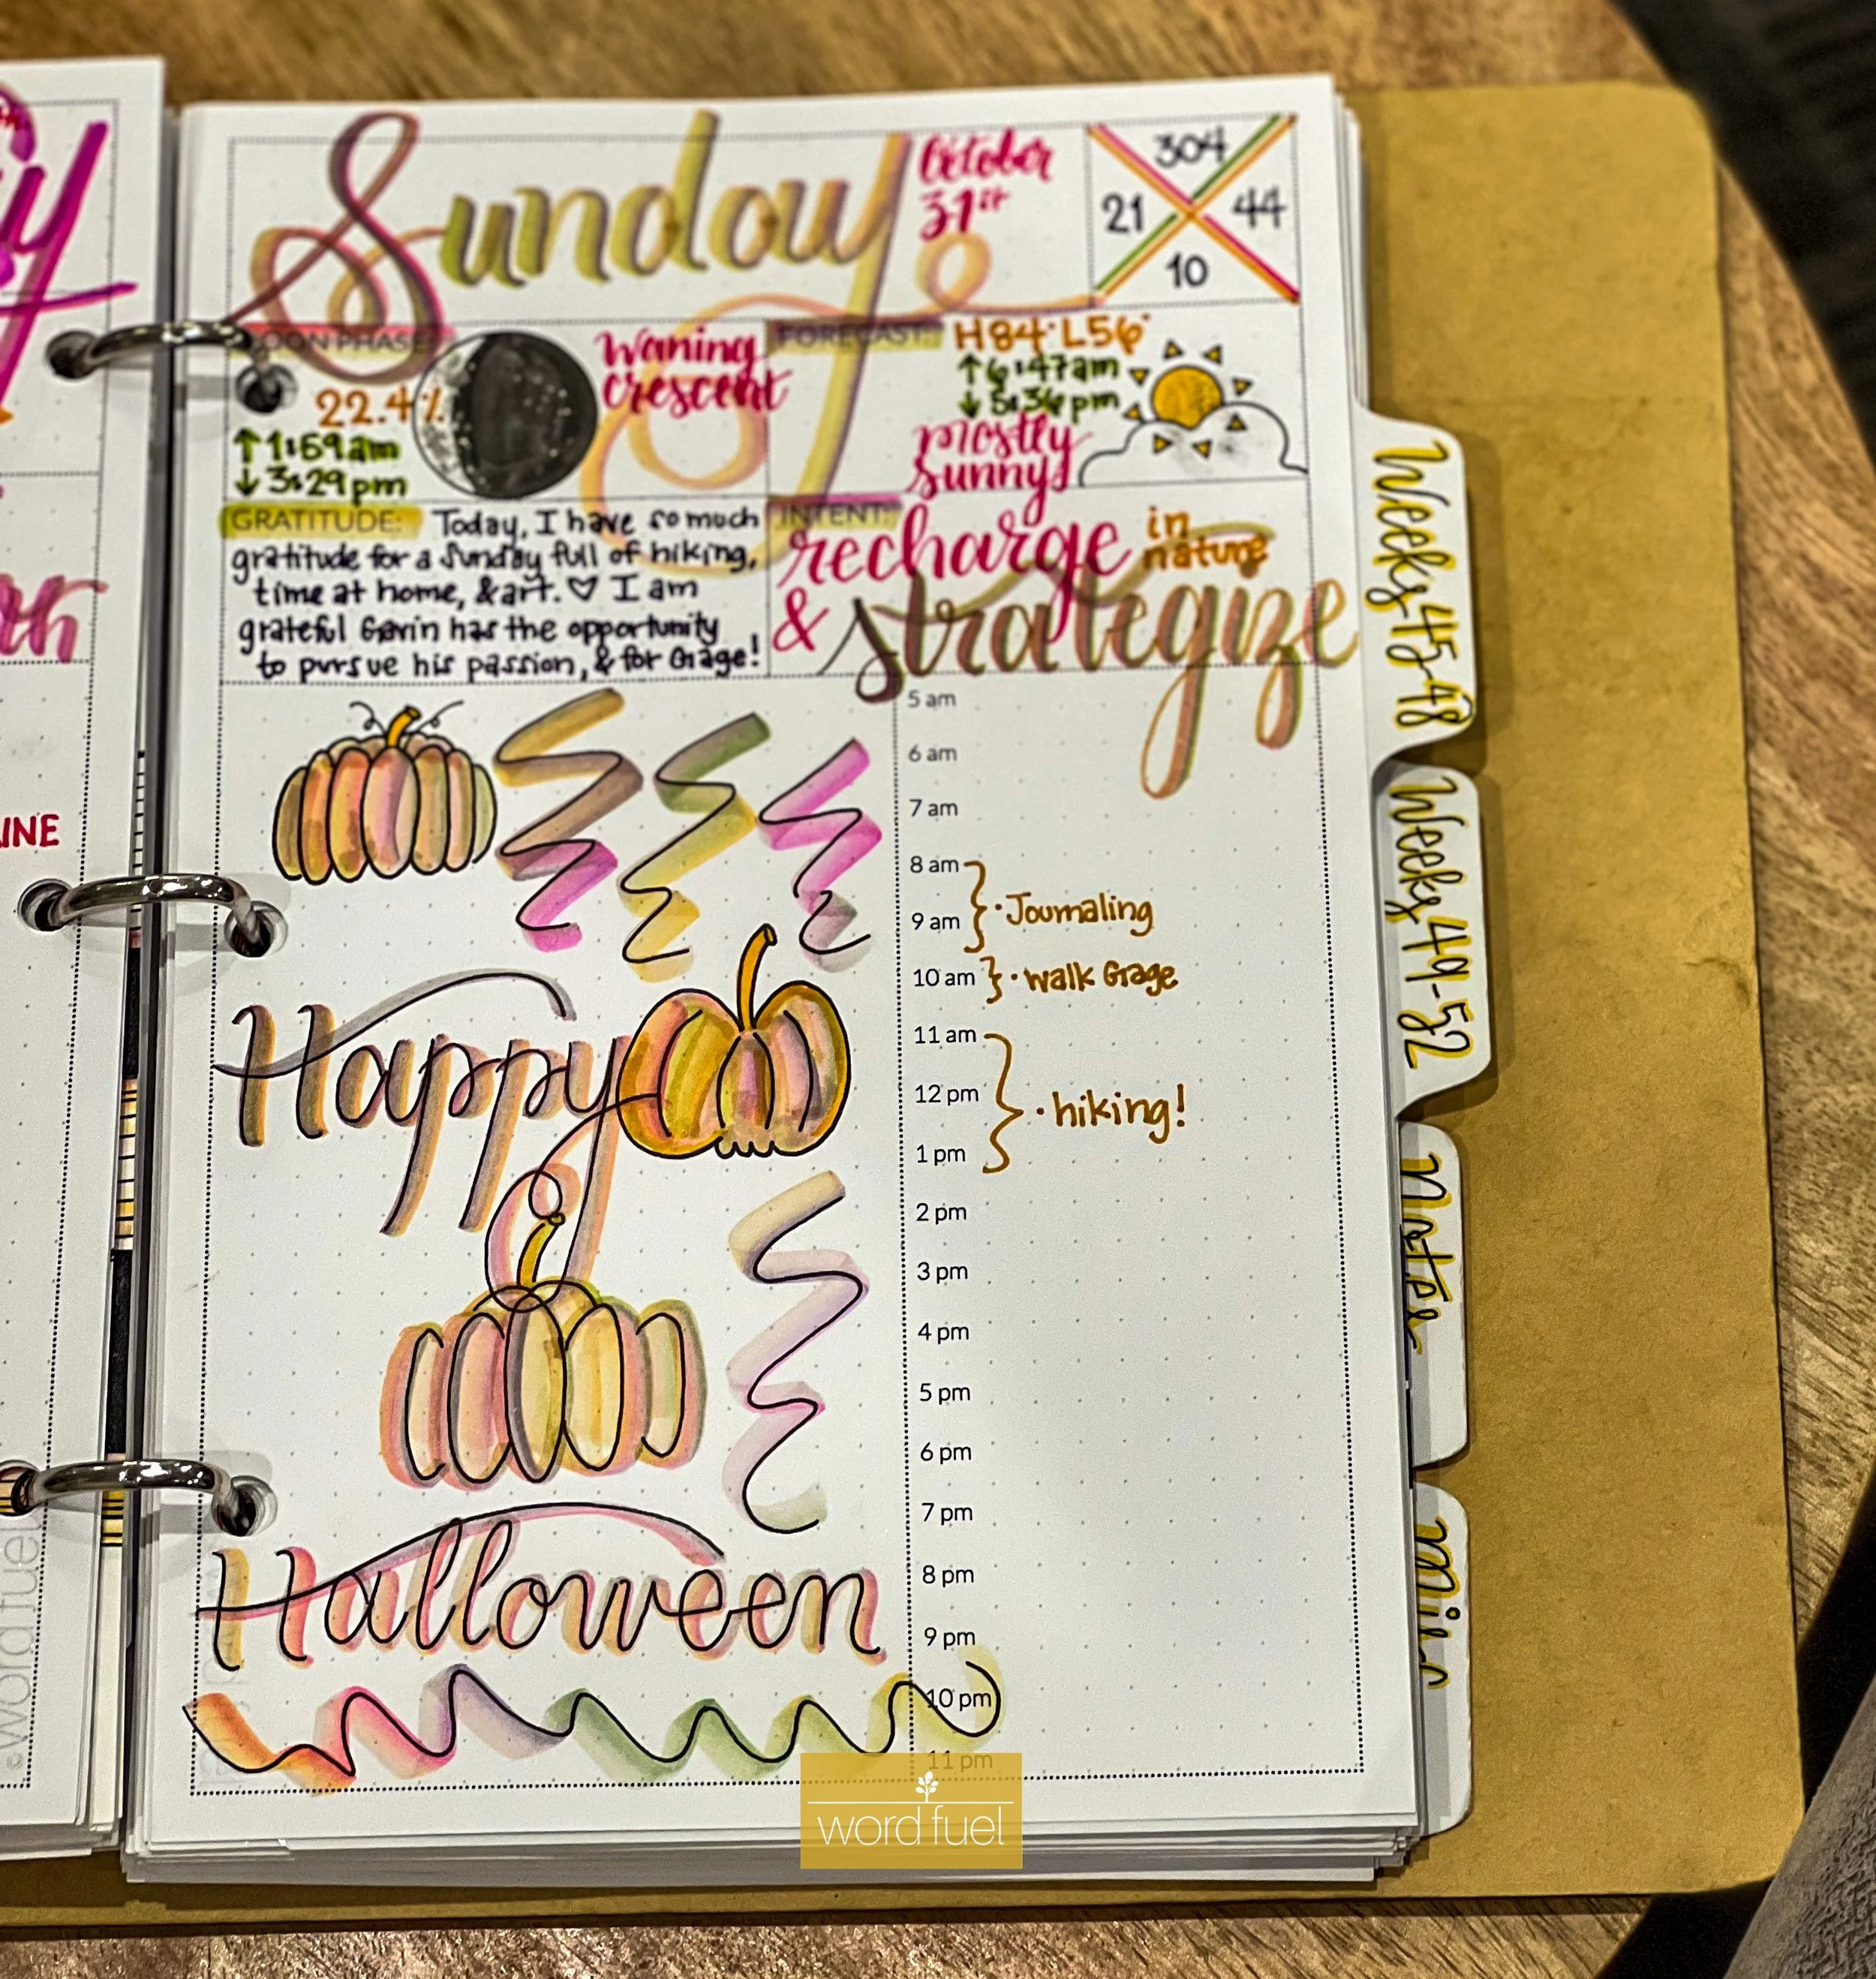 Sunday
October
31st
304
21
44
10
MOON PHASE:
22.4%
↑1:59am
↓3:29pm
Waning
crescent
FORECAST:
H84° L56°
↑6:47am
↓5:36pm
mostly
sunny
GRATITUDE: Today, I have so much
gratitude for a Sunday full of hiking,
time at home, & art. ♡ I am
grateful Gavin has the opportunity
to pursue his passion, & for Gage!
INTENT:
recharge in
nature
& strategize
5 am
6 am
7 am
8 am
9 am
· Journaling
10 am · walk Gage
11 am
12 pm
· hiking!
1 pm
2 pm
3 pm
4 pm
5 pm
6 pm
7 pm
8 pm
9 pm
10 pm
11 pm
Happy
Halloween
Weeks 45-48
Weeks 49-52
Notes
INE
©word fuel
word fuel